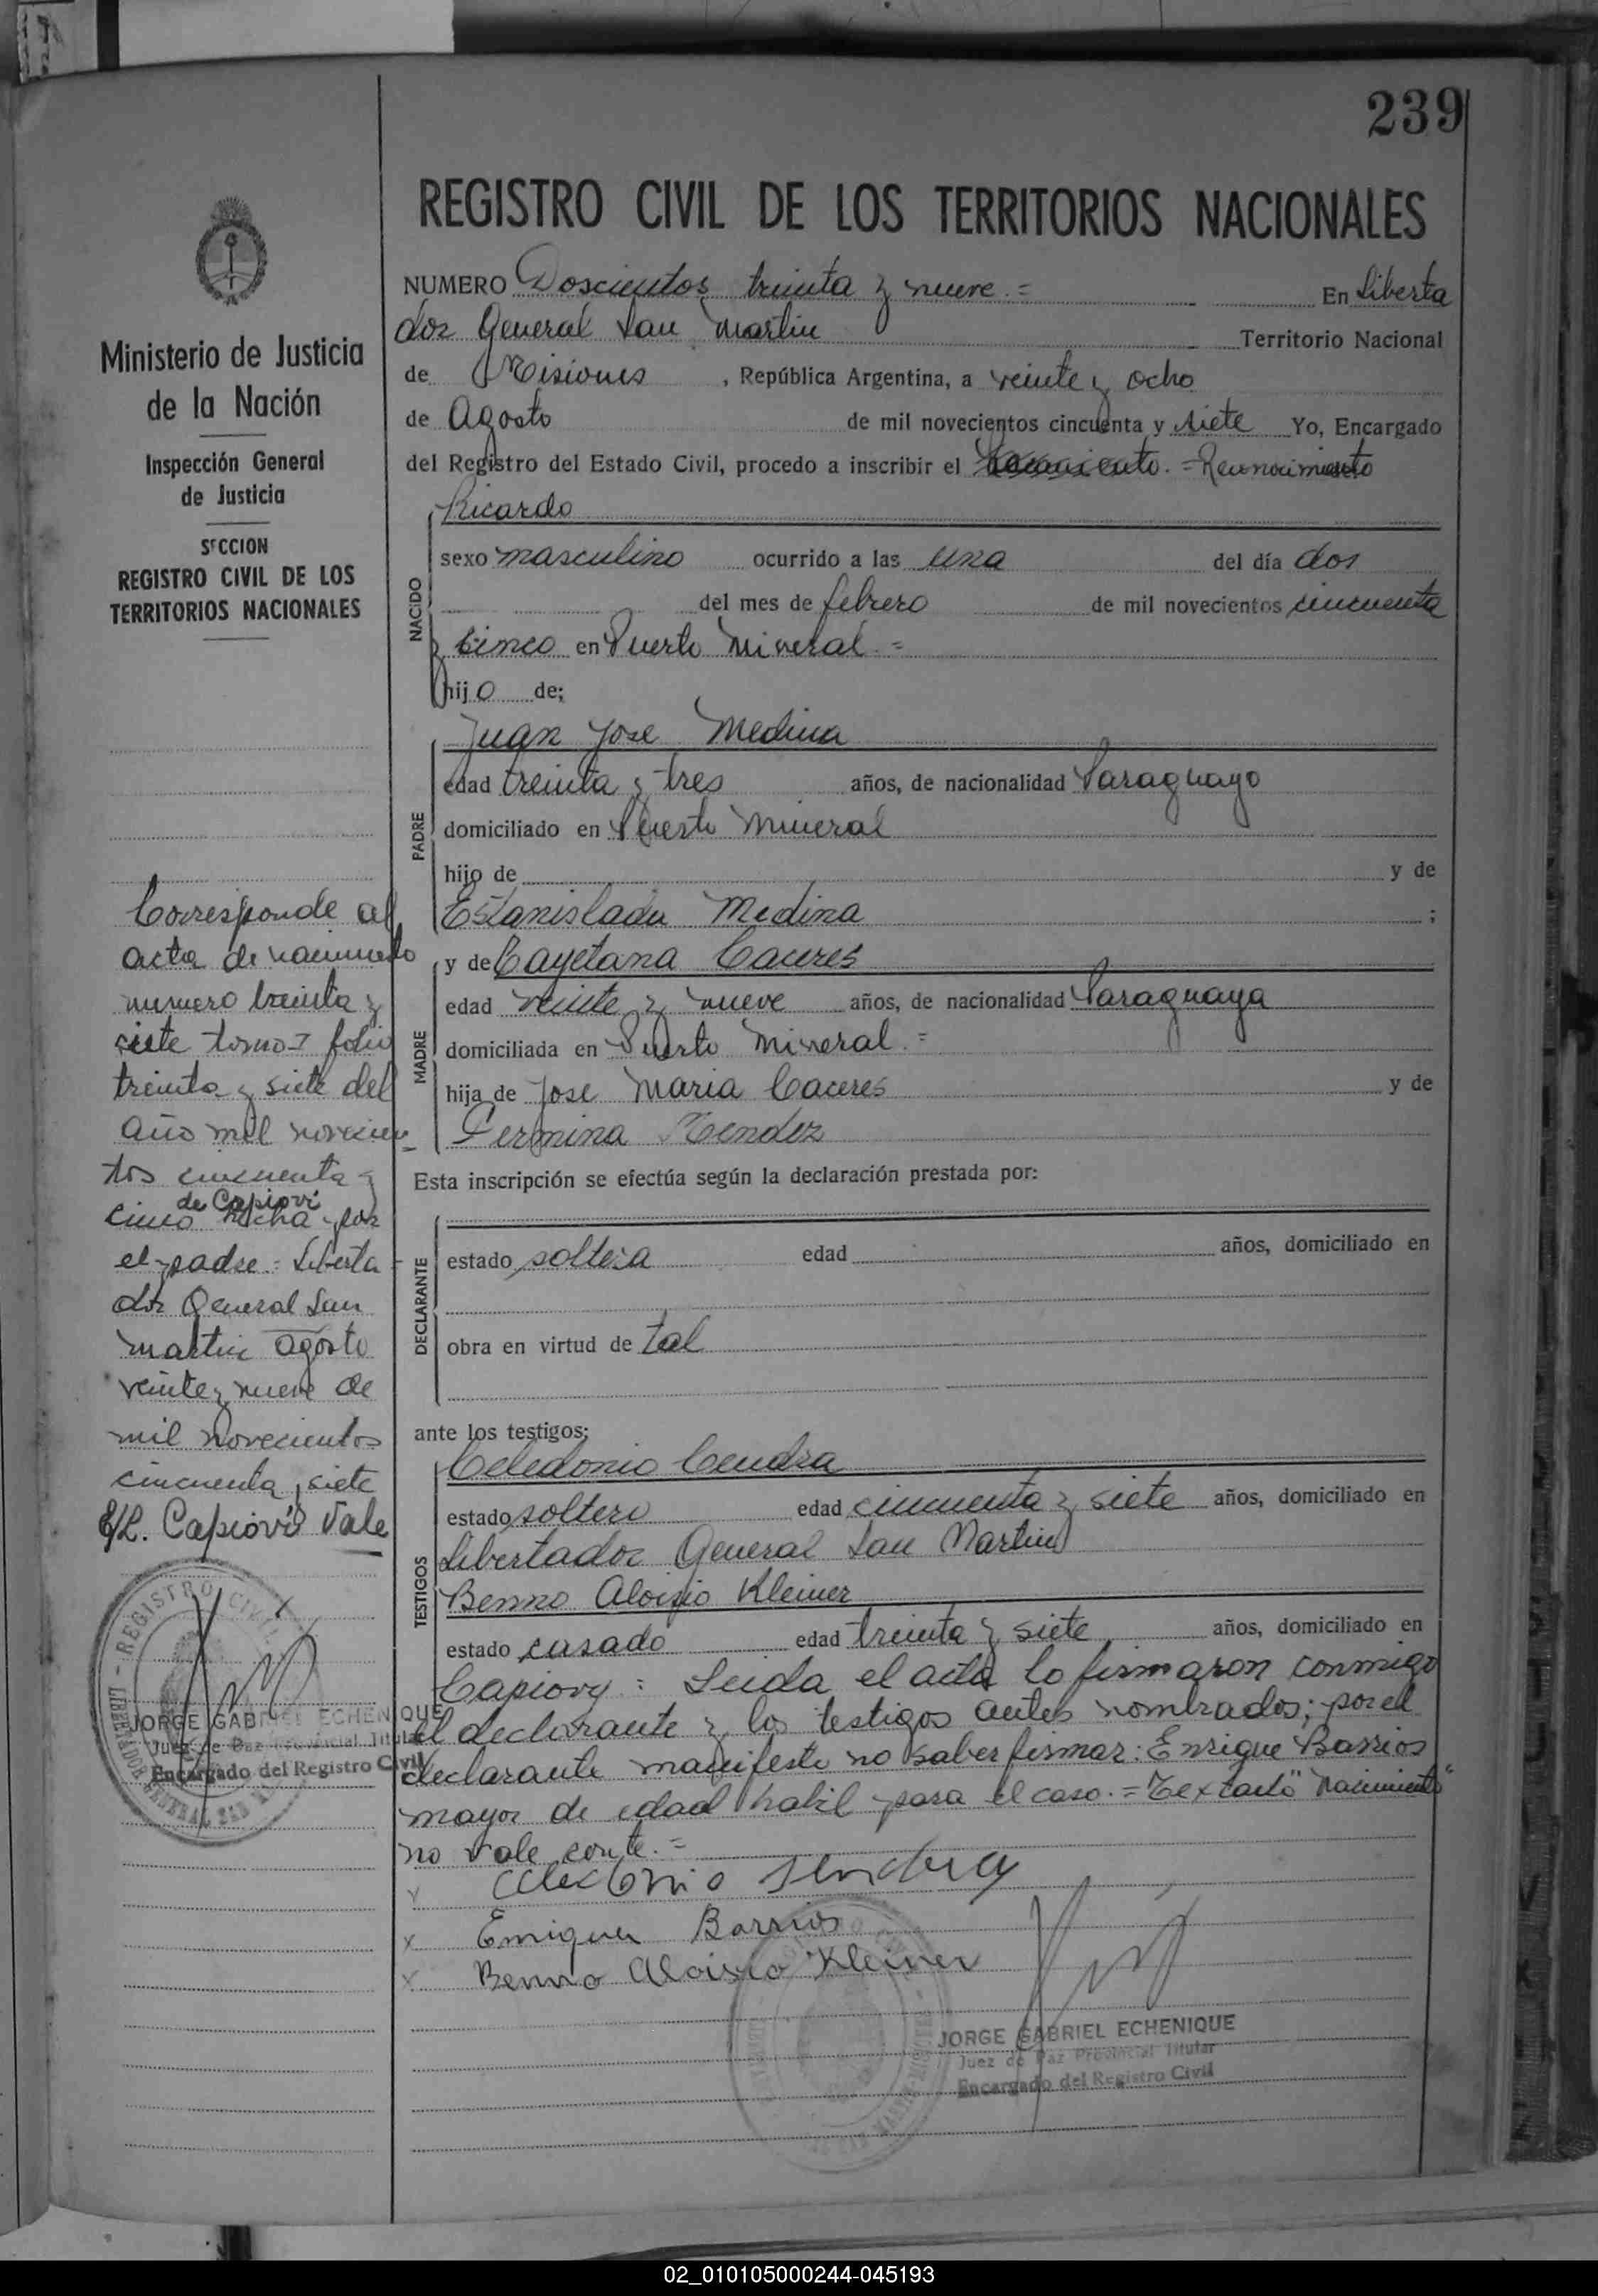 239
REGISTRO CIVIL DE LOS TERRITORIOS NACIONALES
NUMERO Doscientos treinta y nueve.= En Liberta
dor General San Martin Territorio Nacional
de Misiones, República Argentina, a veinte y ocho
de Agosto de mil novecientos cincuenta y siete Yo, Encargado
del Registro del Estado Civil, procedo a inscribir el Nacimiento.=Reconocimiento
NACIDO
Ricardo
sexo masculino ocurrido a las una del día dos
del mes de febrero de mil novecientos cincuenta
y cinco en Puerto Mineral.=
hijo de;
PADRE
Juan Jose Medina
edad treinta y tres años, de nacionalidad Paraguayo
domiciliado en Puerto Mineral
hijo de y de
Estanislada Medina ;
MADRE
y de Cayetana Caceres
edad veinte y nueve años, de nacionalidad Paraguaya
domiciliada en Puerto Mineral.=
hija de Jose Maria Caceres y de
Fermina Mendez
Esta inscripción se efectúa según la declaración prestada por:
DECLARANTE
estado soltera edad años, domiciliado en
obra en virtud de tal
ante los testigos;
TESTIGOS
Celedonio Cendra
estado soltero edad cincuenta y siete años, domiciliado en
Libertador General San Martin
Benno Aloisio Kleiner
estado casado edad treinta y siete años, domiciliado en
Capiovy: Leida el acta lo firmaron conmigo
el declarante y los testigos antes nombrados; por el
declarante manifesto no saber firmar: Enrique Barrios
mayor de edad habil para el caso.=Textado "Nacimiento"
no vale conste.=
x Celedonio Sendra
x Enrique Barrios
x Benno Aloisio Kleiner
JORGE GABRIEL ECHENIQUE
Juez de Paz Provincial Titular
Encargado del Registro Civil
Ministerio de Justicia
de la Nación
Inspección General
de Justicia
SECCION
REGISTRO CIVIL DE LOS
TERRITORIOS NACIONALES
Corresponde al
acta de nacimiento
numero treinta y
siete tomo I folio
treinta y siete del
año mil novecien
tos cincuenta y
de Capiovi
cinco hecha por
el padre.= Liberta
dor General San
Martin agosto
veinte y nueve de
mil novecientos
cincuenta y siete
E/L. Capiovi Vale
REGISTRO CIVIL
LIBERTADOR GENERAL SAN
JORGE GABRIEL ECHENIQUE
Juez de Paz Provincial Titular
Encargado del Registro Civil
02_010105000244-045193